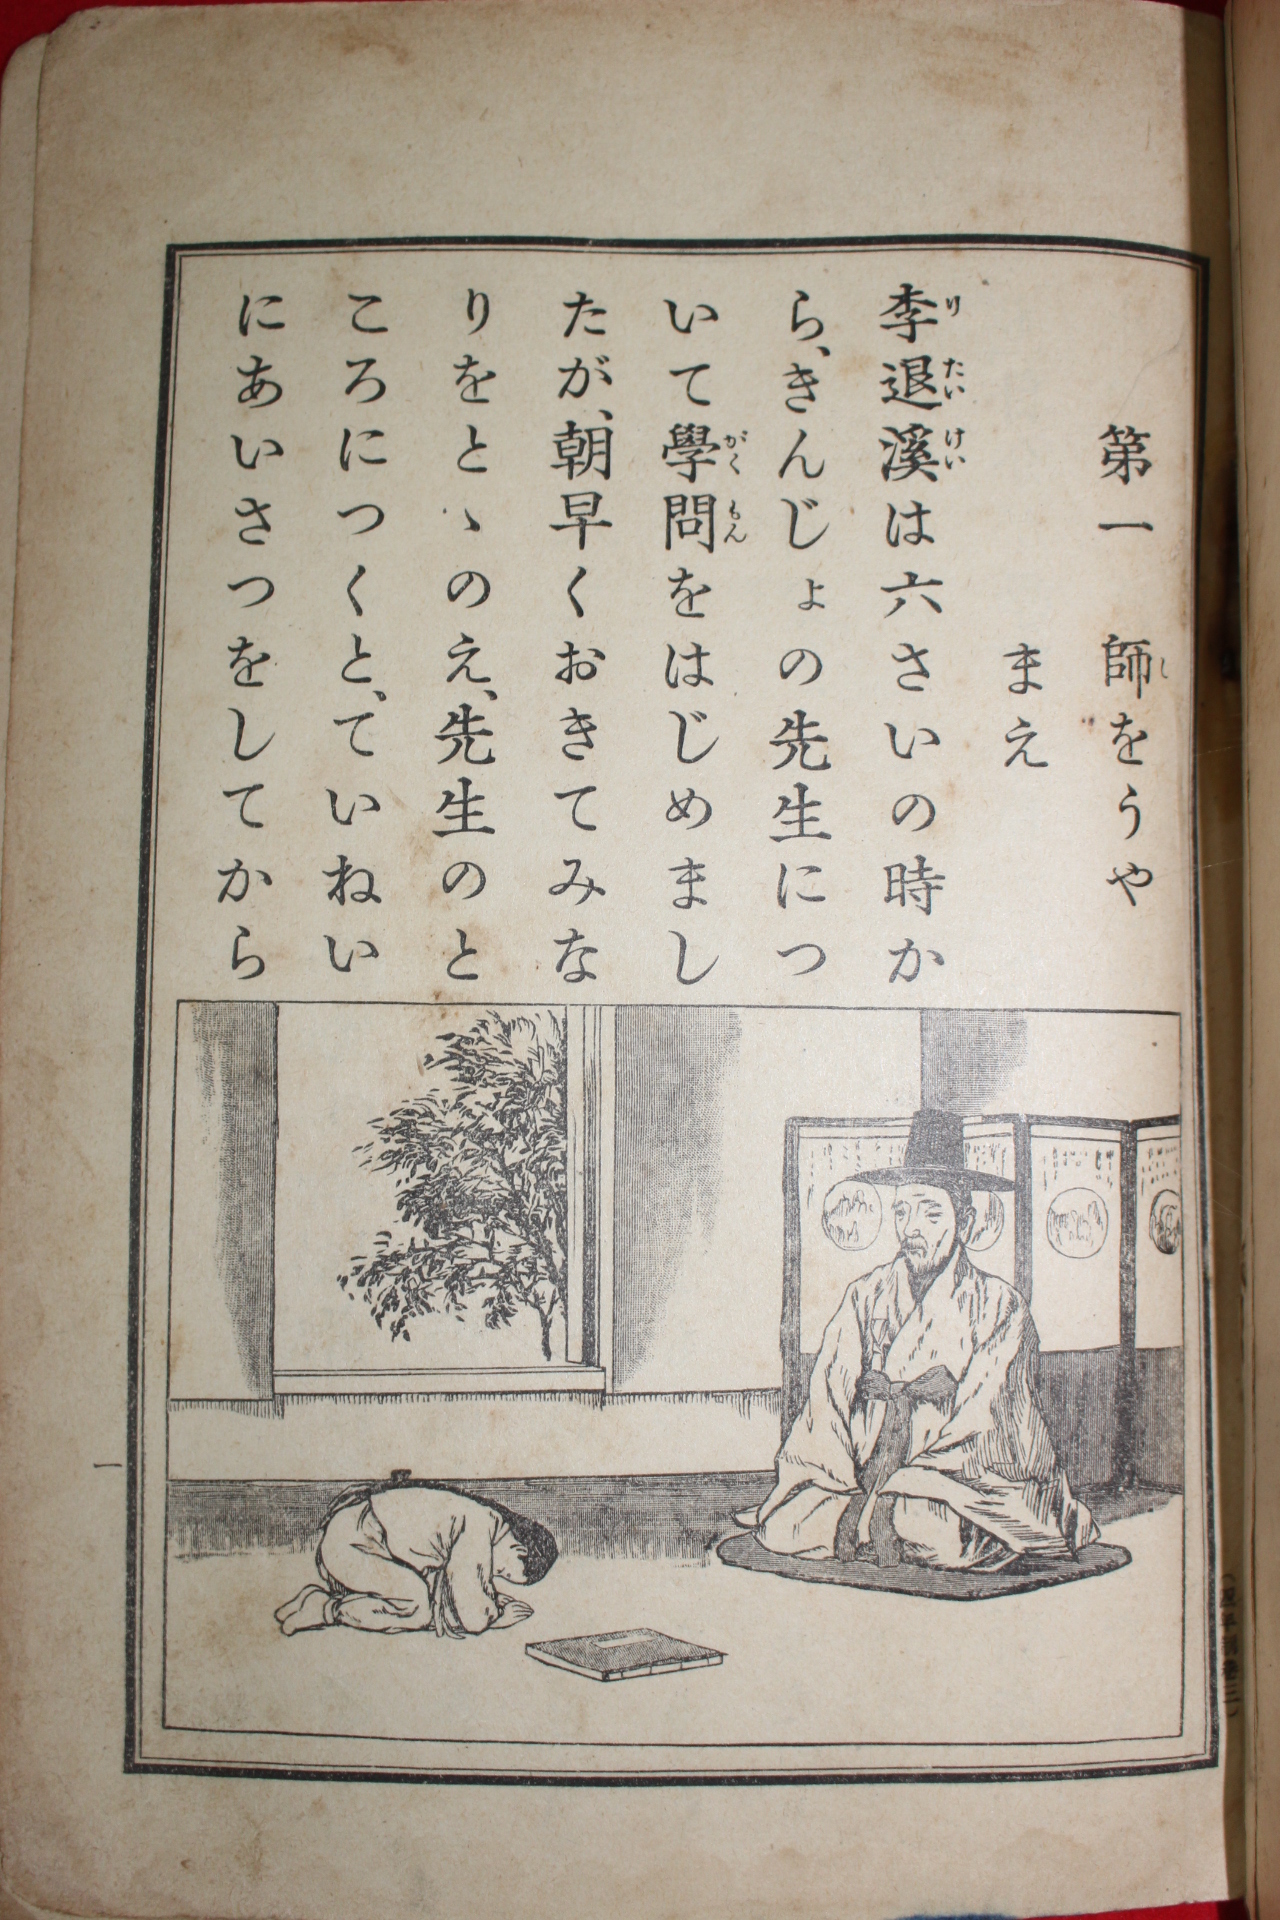 第一 師をうや
まえ
李退溪は六さいの時か
ら、きんじょの先生につ
いて學問をはじめまし
たが、朝早くおきてみな
りをとゝのえ、先生のと
ころにつくと、ていねい
にあいさつをしてから
りたいけい
がくもん
し
一